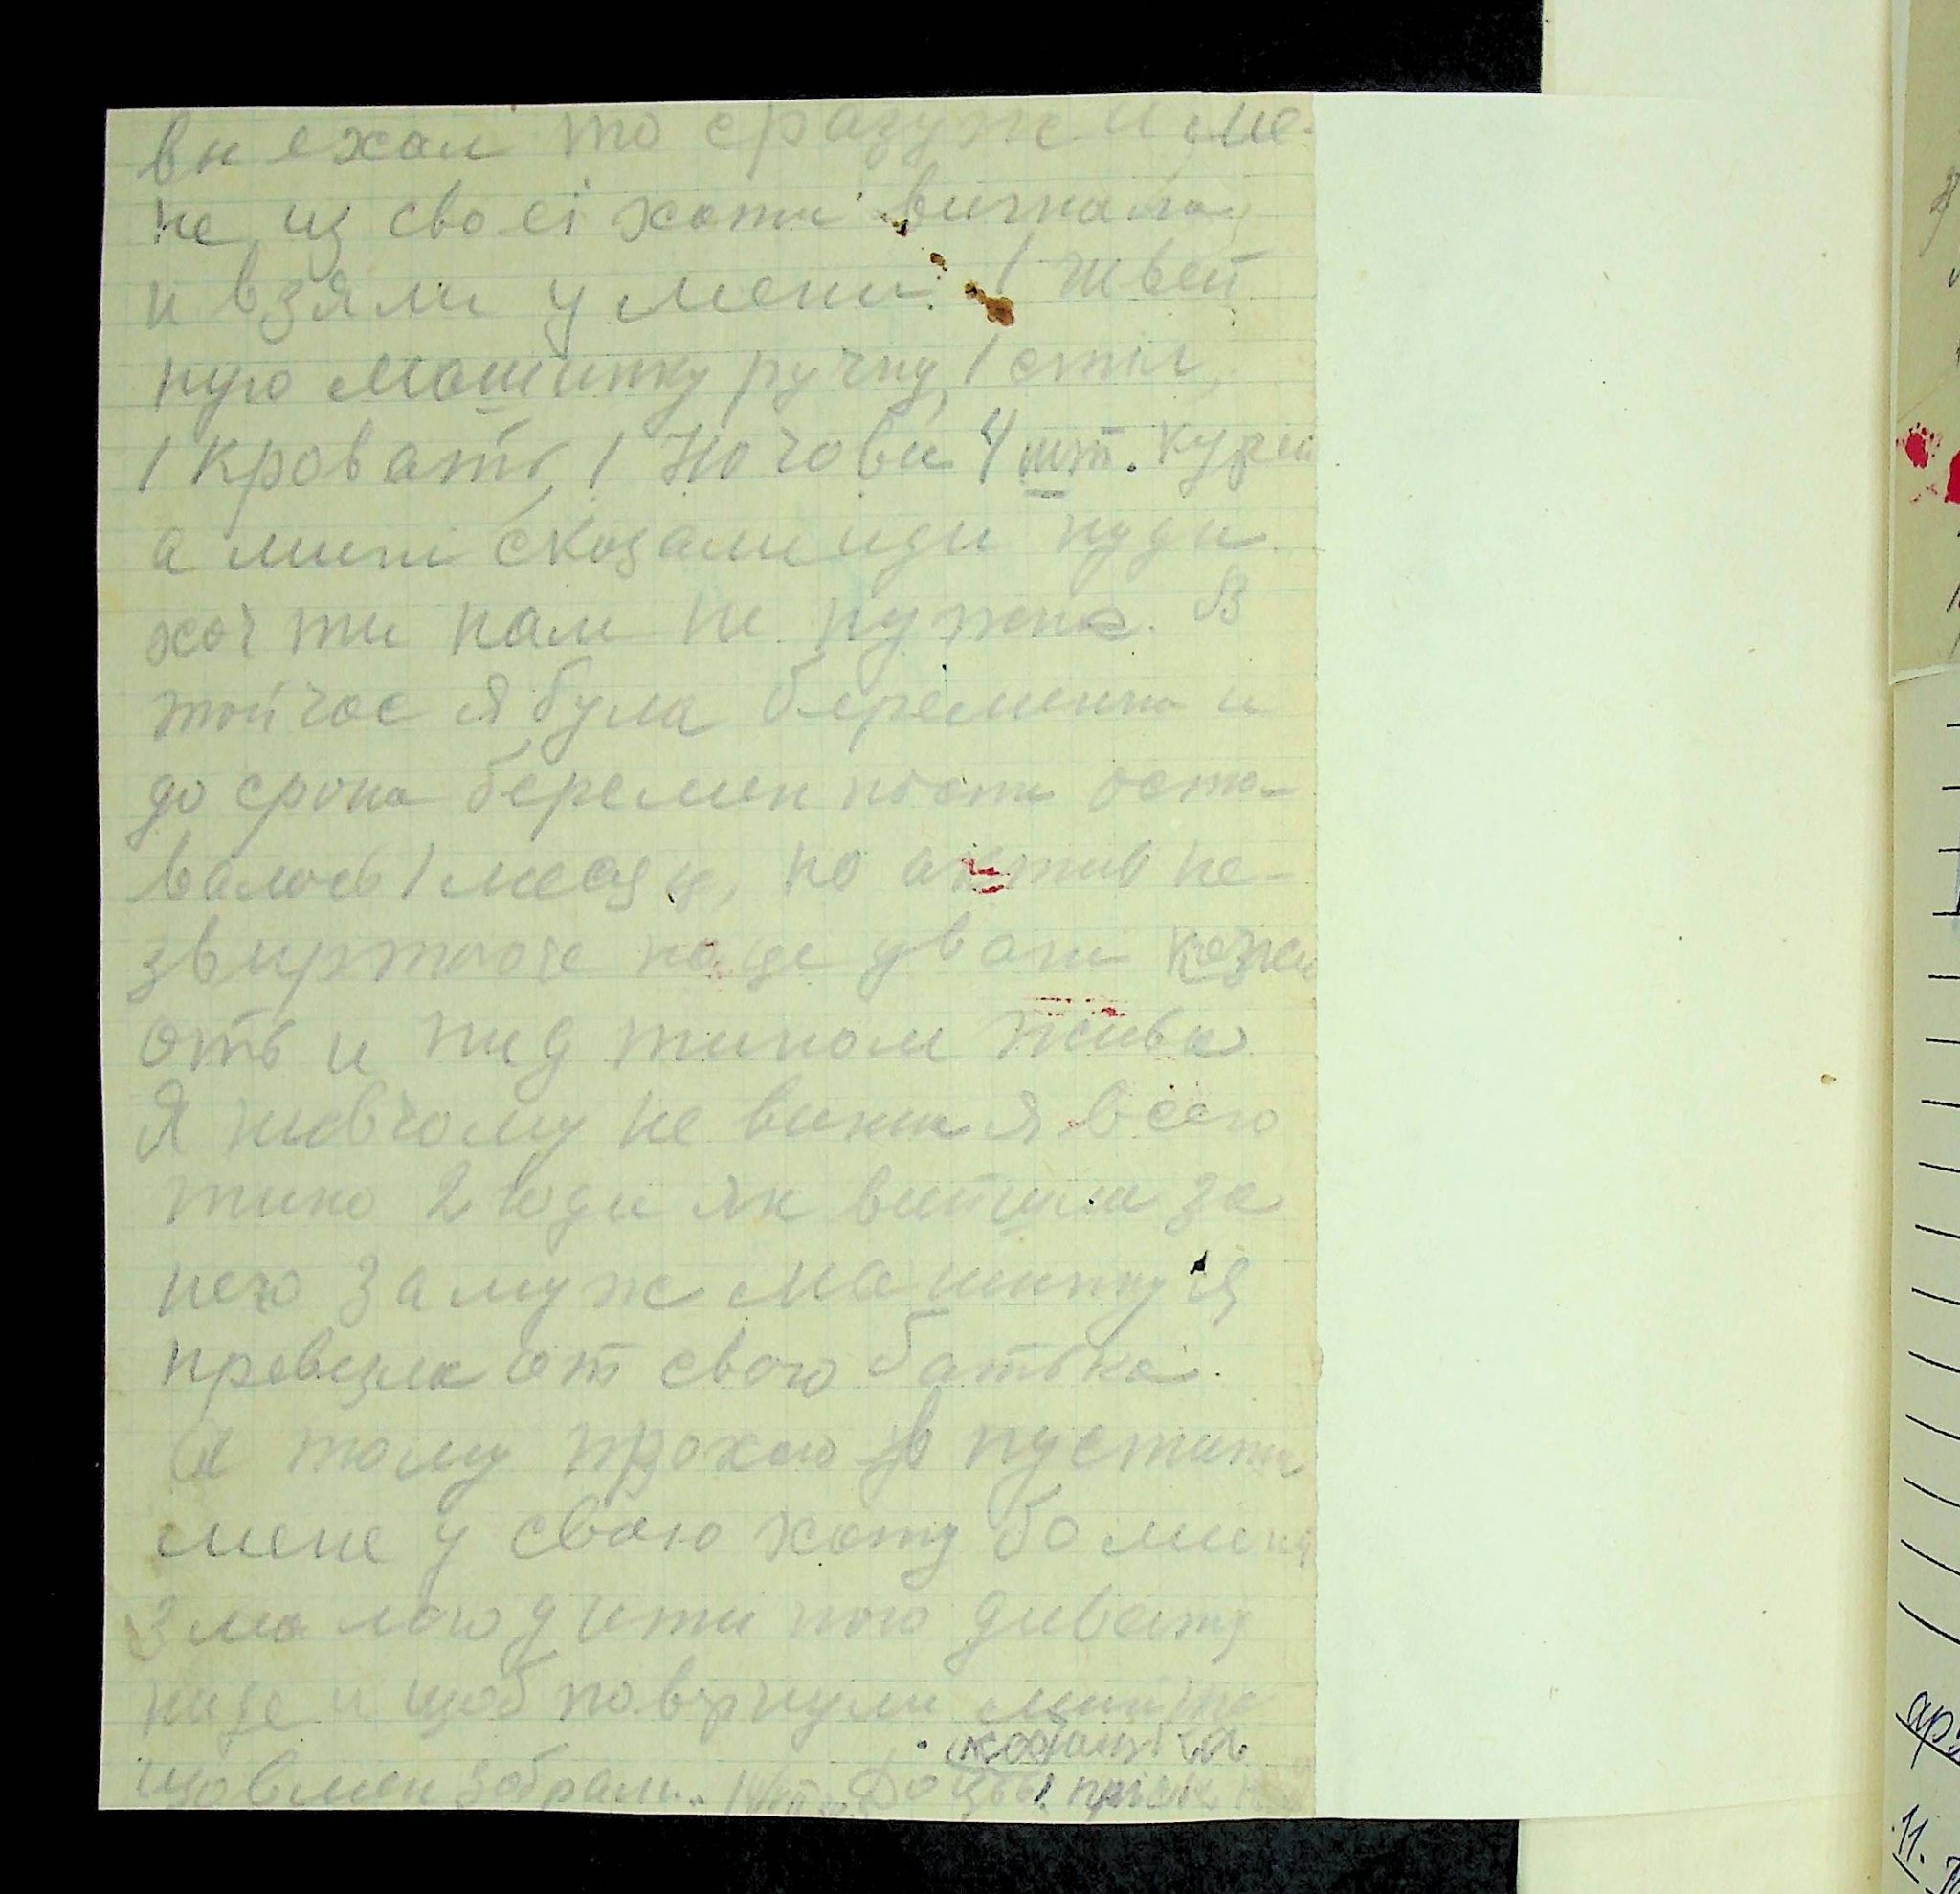 вн ехалі то сразуж и ме-
не из своеі хати вигнали,
и взяли у мени: 1 швей
ную машинку ручну, 1 стіл,
1 кровать, 1 ночови 4 шт. курей
а мині сказали иди куди
хоч ти нам не нужна. В
той час я була беременна и
до срока беременности оста-
валось 1 месяц, но актив не-
звиртаючи на це
оть и пид тином живи
Я нивчому не винна я всего
тико 2 годи як вийшла за
него замуж машинку я
превезла от свого батька.
А тому прохаю в пустити
мене у свою хату бо мини
з малою дитиною диватц
низе и щоб повернули мині те
що в мен забрали.